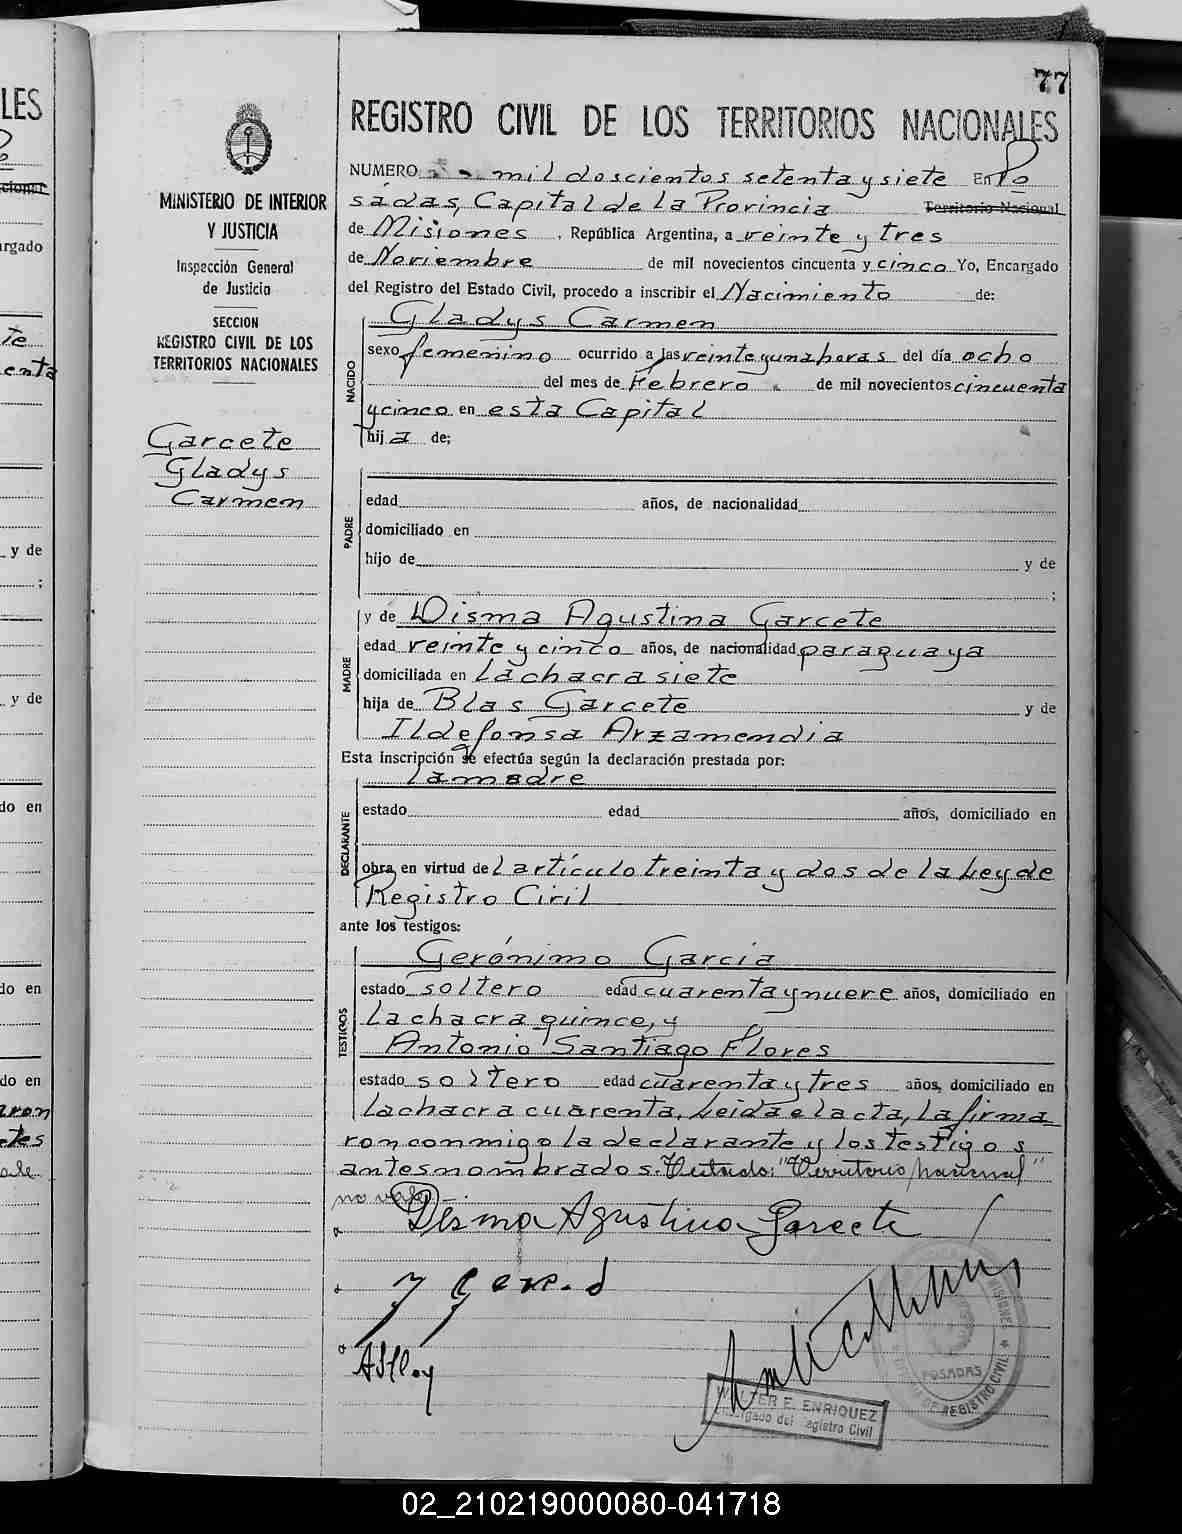 77
REGISTRO CIVIL DE LOS TERRITORIOS NACIONALES
NUMERO mil doscientos setenta y siete En Po
sadas, Capital de la Provincia Territorio Nacional
de Misiones , República Argentina, a veinte y tres
de Noviembre de mil novecientos cincuenta y cinco Yo, Encargado
del Registro del Estado Civil, procedo a inscribir el Nacimiento de:
MINISTERIO DE INTERIOR
Y JUSTICIA
Inspección General
de Justicia
SECCION
REGISTRO CIVIL DE LOS
TERRITORIOS NACIONALES
Garcete
Gladys
Carmen
NACIDO
Gladys Carmen
sexo femenino ocurrido a las veinte y una horas del día ocho
del mes de Febrero de mil novecientos cincuenta
y cinco en esta Capital
hija de;
PADRE
edad años, de nacionalidad
domiciliado en
hijo de y de
;
MADRE
y de Disma Agustina Garcete
edad veinte y cinco años, de nacionalidad paraguaya
domiciliada en la chacra siete
hija de Blas Garcete y de
Ildefonsa Arzamendia
Esta inscripción se efectúa según la declaración prestada por:
la madre
DECLARANTE
estado edad años, domiciliado en
obra en virtud del artículo treinta y dos de la Ley de
Registro Civil
ante los testigos:
TESTIGOS
Gerónimo Garcia
estado soltero edad cuarenta y nueve años, domiciliado en
la chacra quince, y
Antonio Santiago Flores
estado soltero edad cuarenta y tres años, domiciliado en
la chacra cuarenta. Leida el acta, la firma
ron conmigo la declarante y los testigos
antes nombrados. Testado: "Territorio Nacional"
no vale
Disma Agustina Garcete
WALTER E. ENRIQUEZ
Encargado del Registro Civil
POSADAS
REGISTRO CIVIL
LES
argado
y de
;
y de
do en
do en
do en
02_210219000080-041718